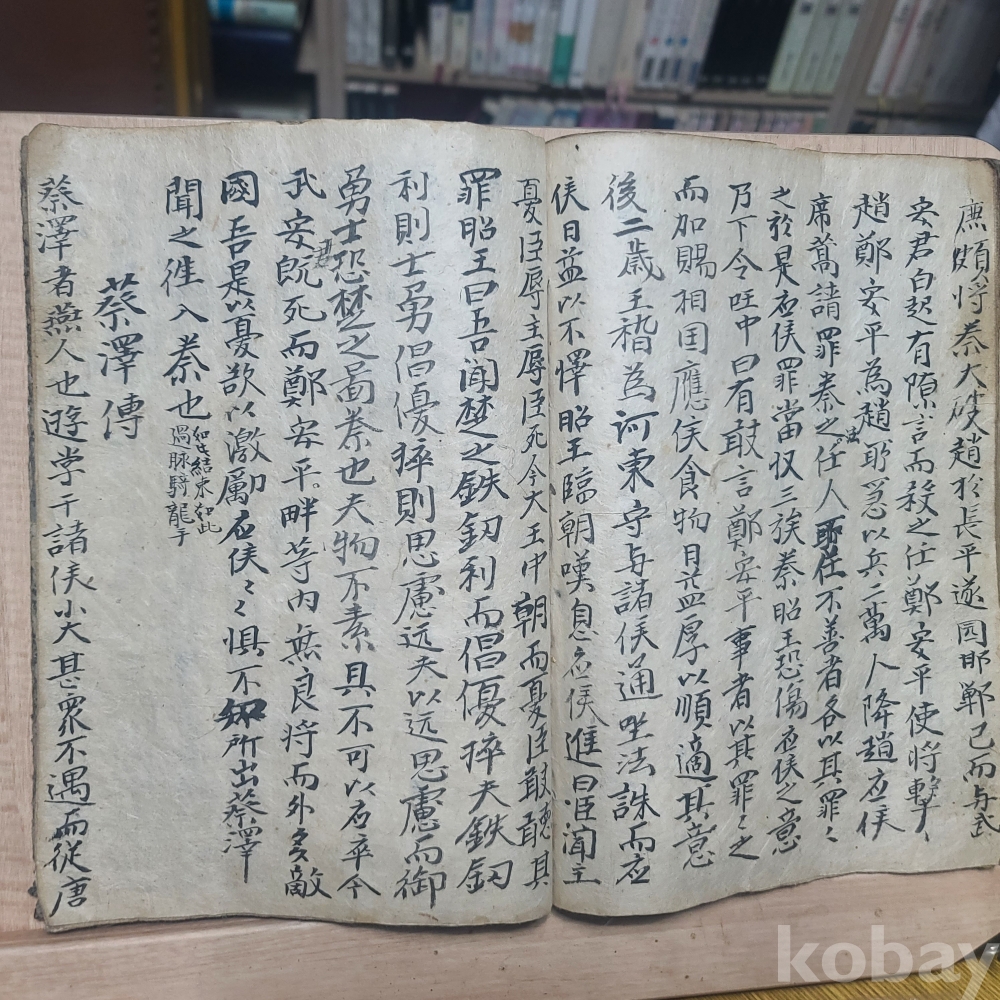 廉頗將秦大破趙於長平遂囲邯鄲已而与武
安君白起有隙言而殺之任鄭安平使將擊〻
趙鄭安平為趙所急以兵二萬人降趙应侯
席藁請罪秦之法任人所任不善者各以其罪〻
之於是应侯罪當収三族秦昭王恐傷应侯之意
乃下令囯中曰有敢言鄭安平事者以其罪〻之
而加賜相囯應侯食物日益厚以順適其意
後二歲王稽為河東守与諸侯通坐法誅而应
侯日益以不懌昭王臨朝嘆息应侯進曰臣闻主
憂臣辱主辱臣死今大王中朝而憂臣敢請其
罪昭王曰吾闻楚之鉄釼利而倡優猝夫鉄釼
利則士勇倡優猝則思慮远夫以远思慮而御
勇士恐楚之啚秦也夫物不素具不可以应卒今
武安君既死而鄭安平畔等内無良將而外多敵
國吾是以憂欲以激厲应侯〻惧不知所出蔡澤
聞之徃入秦也
如此結束却此
過脉騎龍手
蔡澤傳
蔡澤者燕人也遊学干諸侯小大甚眾不遇而從唐
kobay